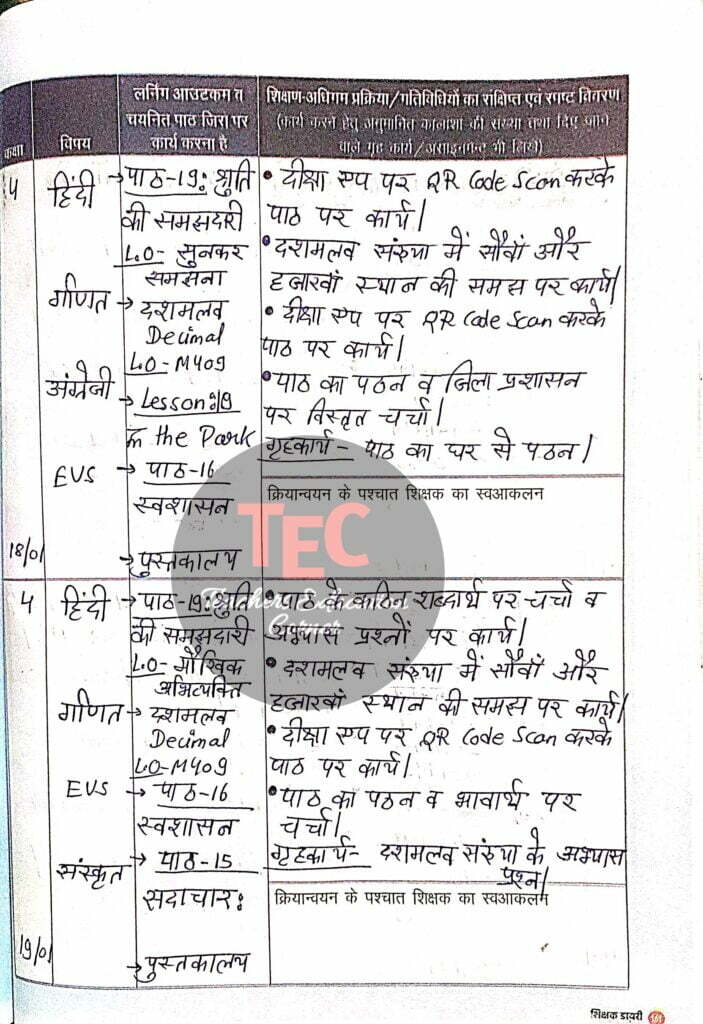 कक्षा
विषय
लर्निंग आउटकम व
चयनित पाठ जिस पर
कार्य करना है
शिक्षण-अधिगम प्रक्रिया/गतिविधियों का संक्षिप्त एवं स्पष्ट विवरण
(कार्य करने हेतु अनुमानित कालांश की संख्या तथा दिए जाने
वाले गृह कार्य/असाइनमेन्ट भी लिखें)
4
हिंदी
→ पाठ-19: श्रुति
की समझदारी
L.O- सुनकर
समझना
गणित
→ दशमलव
Decimal
LO-M409
अंग्रेजी
→ Lesson:9
In the Park
EVS
→ पाठ-16
स्वशासन
→ पुस्तकालय
18/01
• दीक्षा एप पर QR Code Scan करके
पाठ पर कार्य।
• दशमलव संख्या में सौवां और
हजारवां स्थान की समझ पर कार्य।
• दीक्षा एप पर QR Code Scan करके
पाठ पर कार्य।
• पाठ का पठन व जिला प्रशासन
पर विस्तृत चर्चा।
गृहकार्य - पाठ का घर से पठन।
क्रियान्वयन के पश्चात शिक्षक का स्वआकलन
TEC
Teachers Education
Corner
4
हिंदी
→ पाठ-19: श्रुति
की समझदारी
LO- मौखिक
अभिव्यक्ति
गणित
→ दशमलव
Decimal
LO-M409
EVS
→ पाठ-16
स्वशासन
संस्कृत
→ पाठ-15
सदाचार:
→ पुस्तकालय
19/01
• पाठ के कठिन शब्दार्थ पर चर्चा व
अभ्यास प्रश्नों पर कार्य।
• दशमलव संख्या में सौवां और
हजारवां स्थान की समझ पर कार्य।
• दीक्षा एप पर QR Code Scan करके
पाठ पर कार्य।
• पाठ का पठन व भावार्थ पर
चर्चा।
गृहकार्य- दशमलव संख्या के अभ्यास
प्रश्न।
क्रियान्वयन के पश्चात शिक्षक का स्वआकलन
शिक्षक डायरी